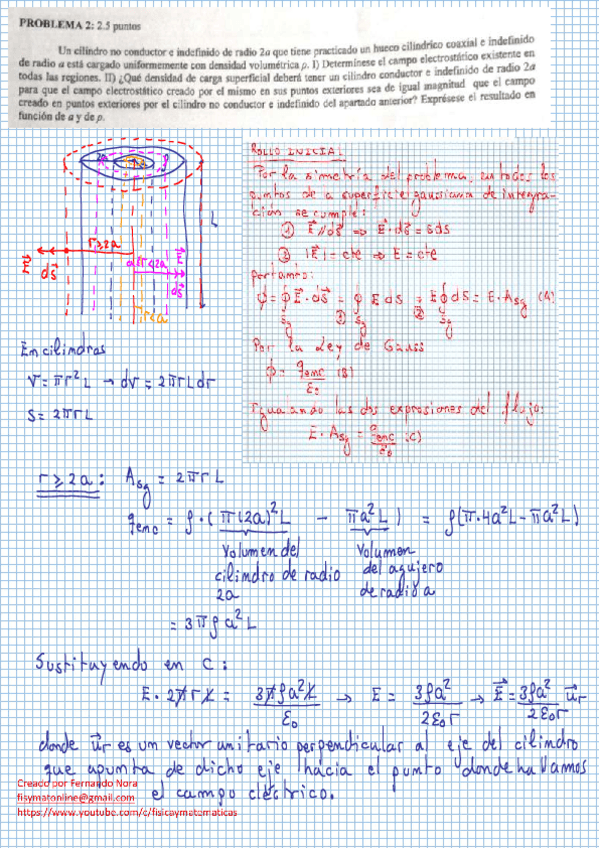 PROBLEMA 2: 2.5 puntos
Un cilindro no conductor e indefinido de radio 2a que tiene practicado un hueco cilíndrico coaxial e indefinido
de radio a está cargado uniformemente con densidad volumétrica ρ. I) Determínese el campo electrostático existente en
todas las regiones. II) ¿Qué densidad de carga superficial deberá tener un cilindro conductor e indefinido de radio 2a
para que el campo electrostático creado por el mismo en sus puntos exteriores sea de igual magnitud que el campo
creado en puntos exteriores por el cilindro no conductor e indefinido del apartado anterior? Exprésese el resultado en
función de a y de ρ.
ROLLO INICIAL
Por la simetría del problema, en todos los
puntos de la superficie gaussiana de integra-
ción se cumple:
① E⃗ // dS⃗ ⇒ E⃗·dS⃗ = EdS
② |E⃗| = cte ⇒ E = cte
Por tanto:
ϕ = ∮ E⃗·dS⃗ = ∮ E dS = E ∮ dS = E·A_Sg (A)
Sg ① Sg ② Sg
Por la Ley de Gauss
ϕ = q_enc / ε₀ (B)
Igualando las dos expresiones del flujo:
E·A_Sg = q_enc / ε₀ (C)
L
r≥2a
a≤r≤2a
r≤a
u⃗r
dS⃗
u⃗r
dS⃗
En cilindros
V = πr²L → dV = 2πrLdr
S = 2πrL
r≥2a: A_Sg = 2πrL
q_enc = ρ·(π(2a)²L - πa²L) = ρ(π·4a²L - πa²L)
Volumen del Volumen
cilindro de radio del agujero
2a de radio a
= 3πρa²L
Sustituyendo en C:
E·2πrL = 3πρa²L / ε₀ → E = 3ρa² / 2ε₀r → E⃗ = 3ρa² / 2ε₀r u⃗r
donde u⃗r es un vector unitario perpendicular al eje del cilindro
que apunta de dicho eje hacia el punto donde hallamos
el campo eléctrico.
Creado por Fernando Nora
fisymatonline@gmail.com
https://www.youtube.com/c/fisicaymatematicas